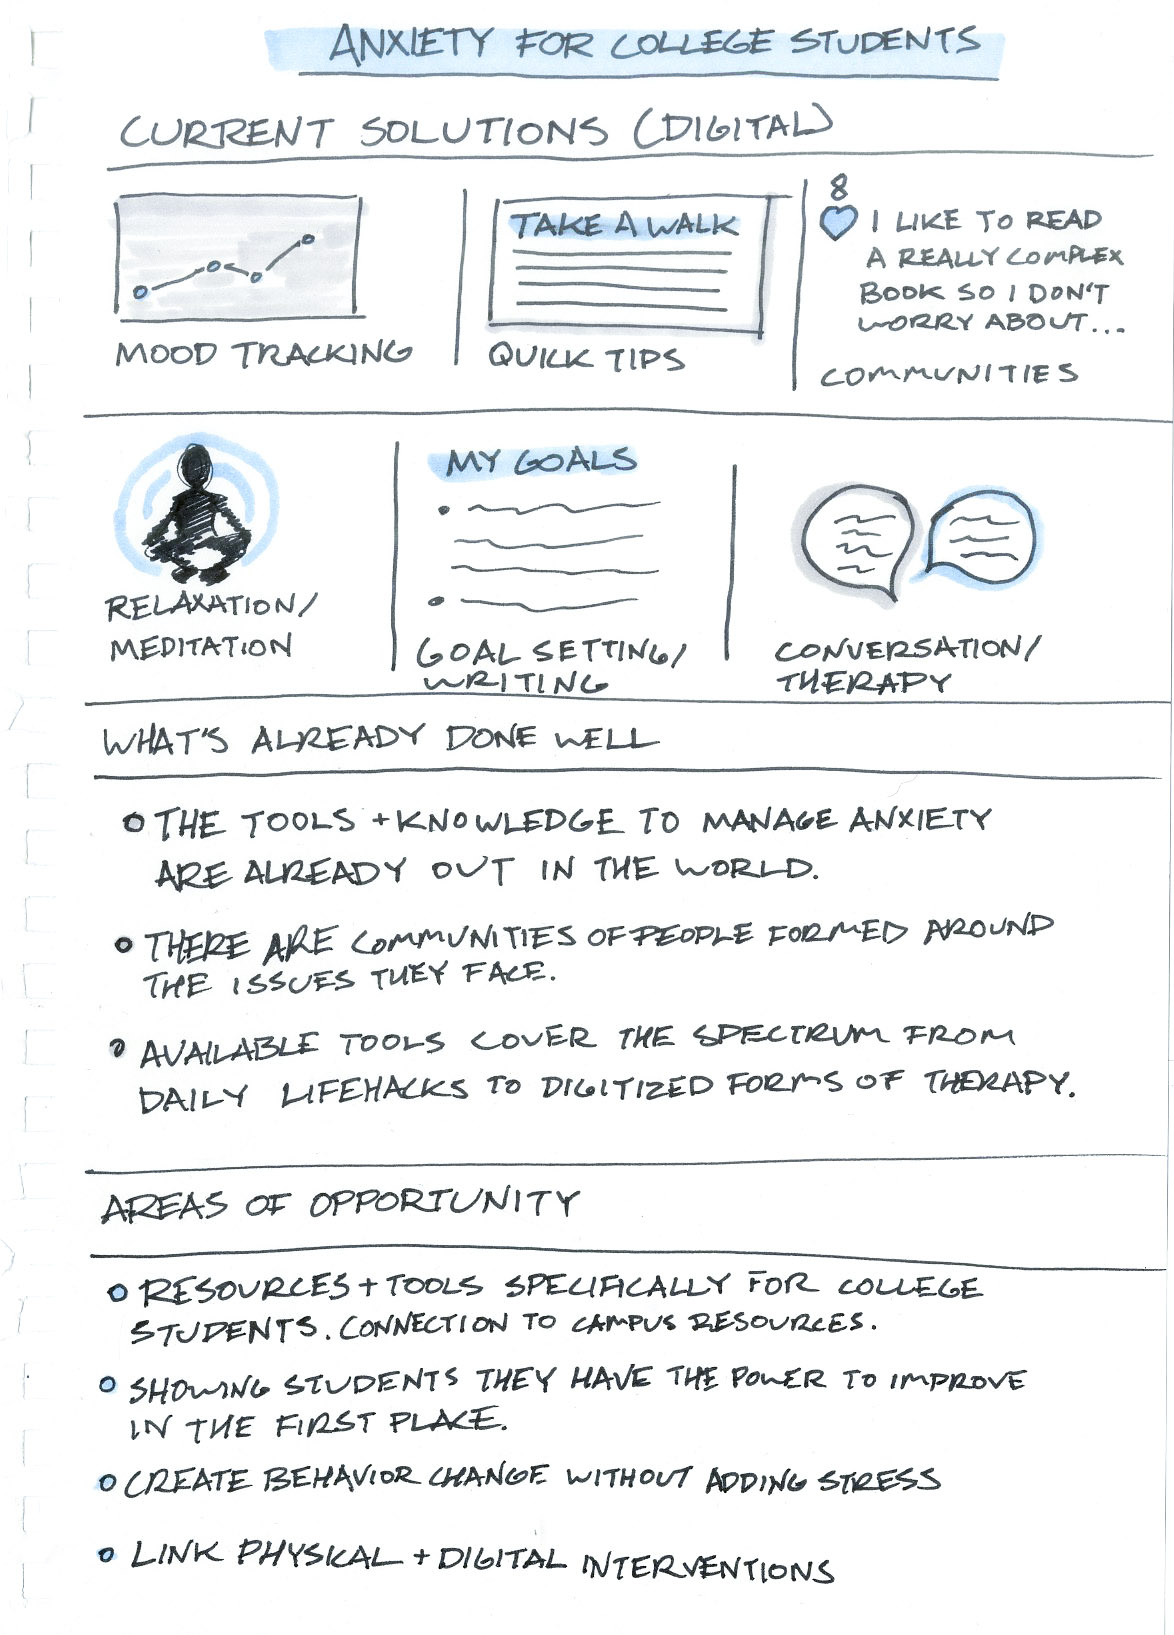 ANXIETY FOR COLLEGE STUDENTS
CURRENT SOLUTIONS (DIGITAL)
MOOD TRACKING
TAKE A WALK
QUICK TIPS
8
I LIKE TO READ
A REALLY COMPLEX
BOOK SO I DON'T
WORRY ABOUT...
COMMUNITIES
RELAXATION/
MEDITATION
MY GOALS
GOAL SETTING/
WRITING
CONVERSATION/
THERAPY
WHAT'S ALREADY DONE WELL
THE TOOLS + KNOWLEDGE TO MANAGE ANXIETY
ARE ALREADY OUT IN THE WORLD.
THERE ARE COMMUNITIES OF PEOPLE FORMED AROUND
THE ISSUES THEY FACE.
AVAILABLE TOOLS COVER THE SPECTRUM FROM
DAILY LIFEHACKS TO DIGITIZED FORMS OF THERAPY.
AREAS OF OPPORTUNITY
RESOURCES + TOOLS SPECIFICALLY FOR COLLEGE
STUDENTS. CONNECTION TO CAMPUS RESOURCES.
SHOWING STUDENTS THEY HAVE THE POWER TO IMPROVE
IN THE FIRST PLACE.
CREATE BEHAVIOR CHANGE WITHOUT ADDING STRESS
LINK PHYSICAL + DIGITAL INTERVENTIONS